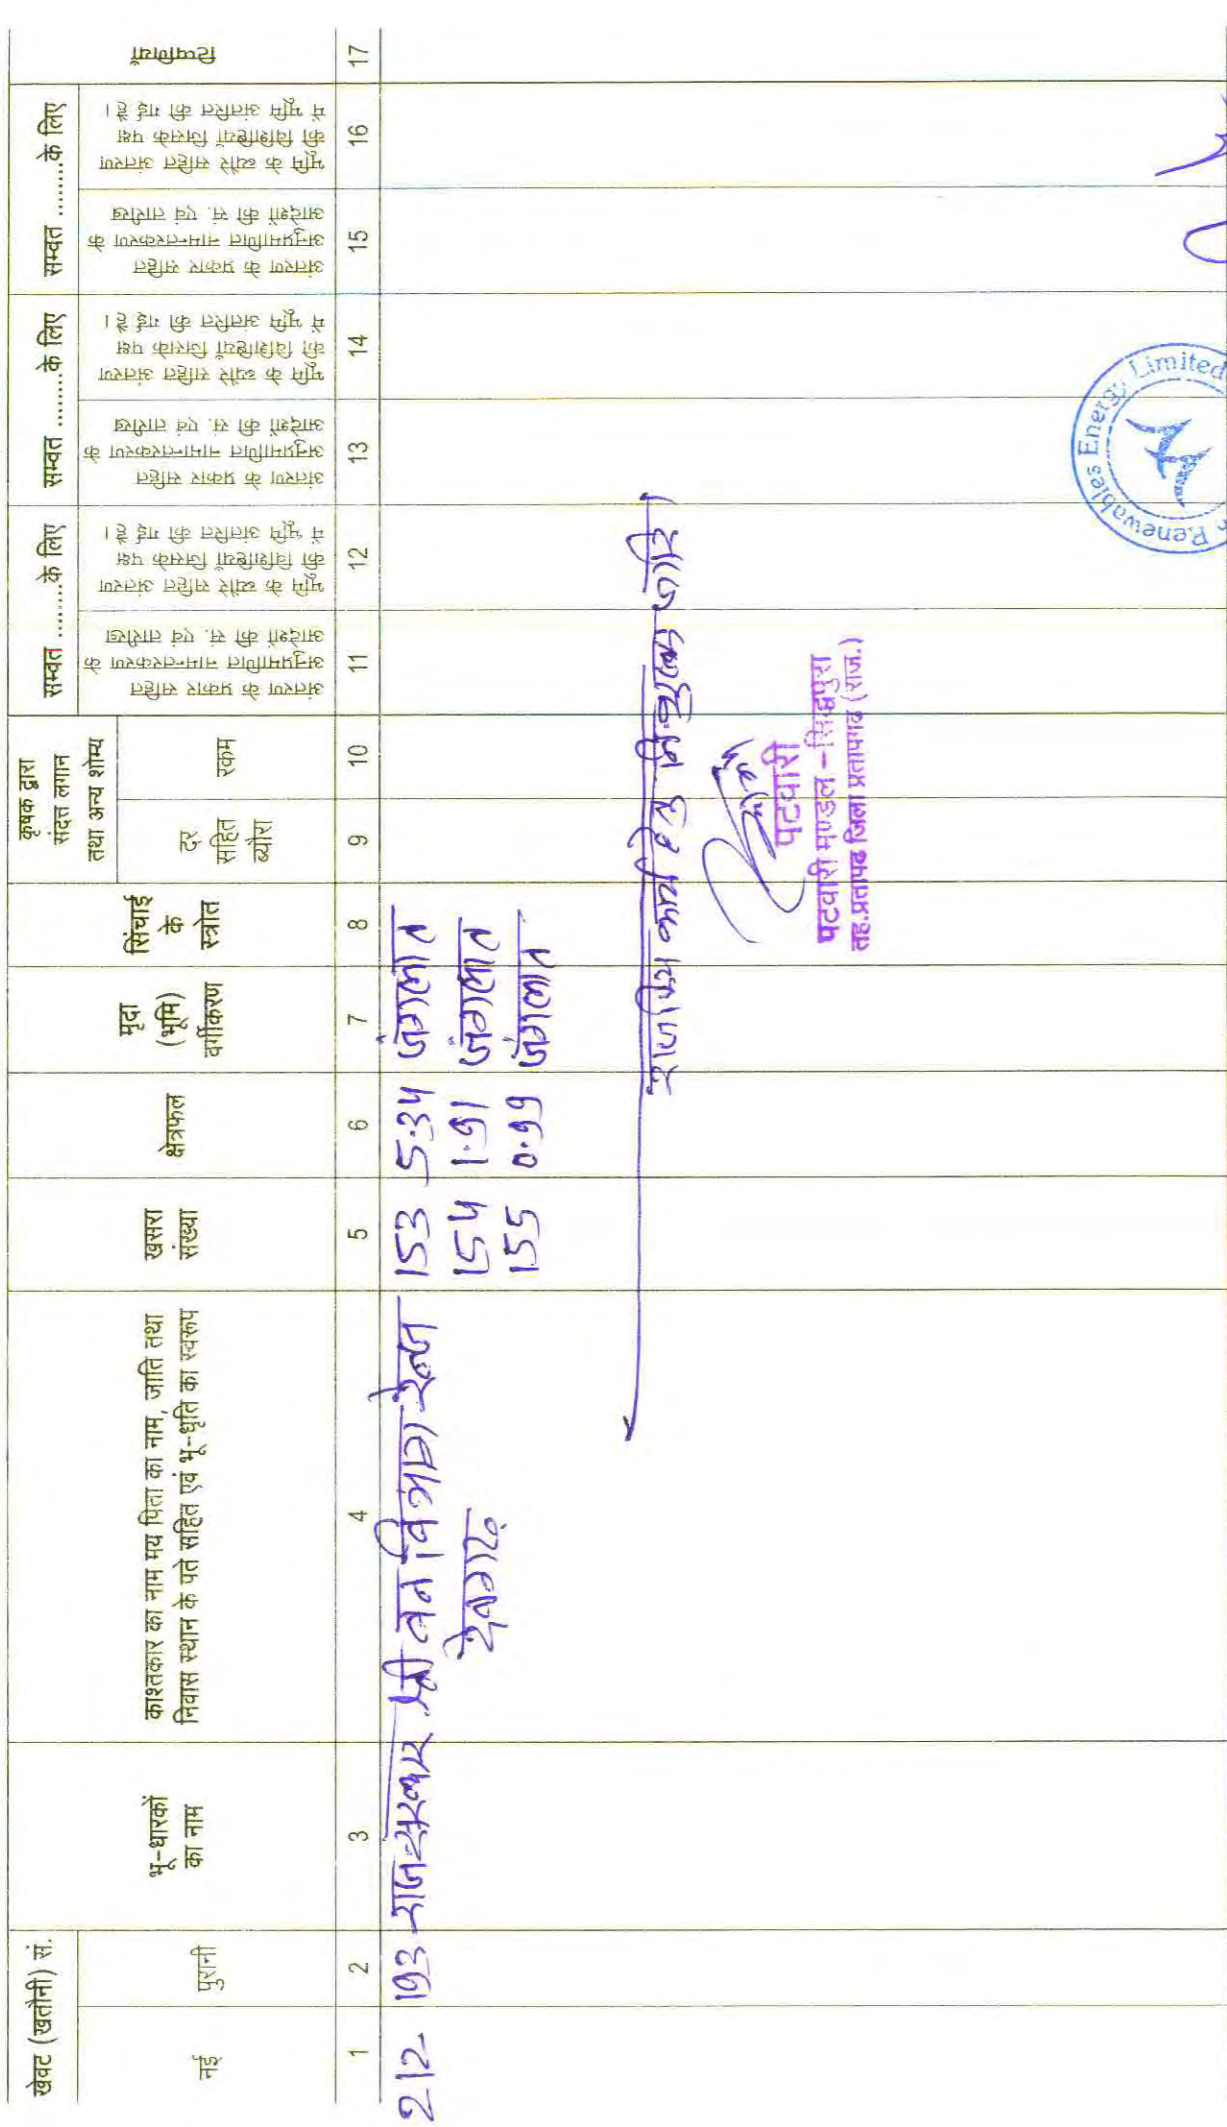 खेवट (खतौनी) सं.
नई
पुरानी
भू-धारकों
का नाम
काश्तकार का नाम मय पिता का नाम, जाति तथा
निवास स्थान के पते सहित एवं भू-धृति का स्वरूप
खसरा
संख्या
क्षेत्रफल
मृदा
(भूमि)
वर्गीकरण
सिंचाई
के
स्त्रोत
कृषक द्वारा
संदत्त लगान
तथा अन्य शोम्य
दर
सहित
ब्यौरा
रकम
सम्वत ........के लिए
अंतरण के प्रकार सहित
अनुप्रमाणित नामान्तरकरण के
आदेशों की सं. एवं तारीख
भूमि के ब्यौरे सहित अंतरण
की विशिष्टियाँ जिसके पक्ष
में भूमि अंतरित की गई है।
सम्वत ........के लिए
अंतरण के प्रकार सहित
अनुप्रमाणित नामान्तरकरण के
आदेशों की सं. एवं तारीख
भूमि के ब्यौरे सहित अंतरण
की विशिष्टियाँ जिसके पक्ष
में भूमि अंतरित की गई है।
सम्वत ........के लिए
अंतरण के प्रकार सहित
अनुप्रमाणित नामान्तरकरण के
आदेशों की सं. एवं तारीख
भूमि के ब्यौरे सहित अंतरण
की विशिष्टियाँ जिसके पक्ष
में भूमि अंतरित की गई है।
टिप्पणियाँ
1 2 3 4 5 6 7 8 9 10 11 12 13 14 15 16 17
212 193 राज सरकार श्री वन विभाग रेन्ज 153 5.34 जंगलात
देवगढ़ 154 1.91 जंगलात
155 0.99 जंगलात
राजकिय कार्य हेतु निःशुल्क जारि
पटवारी
पटवारी मण्डल - सिद्धपुरा
तह.प्रतापढ जिला प्रतापगढ (राज.)
Renewables Energy Limited